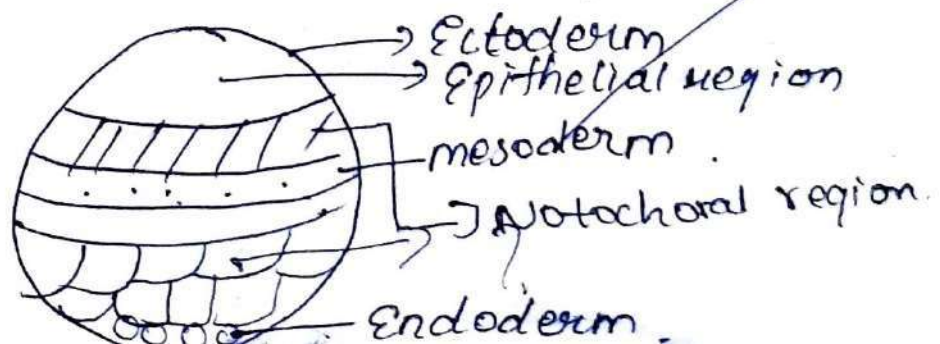 Ectoderm
Epithelial region
mesoderm.
Notochoral region.
Endoderm.